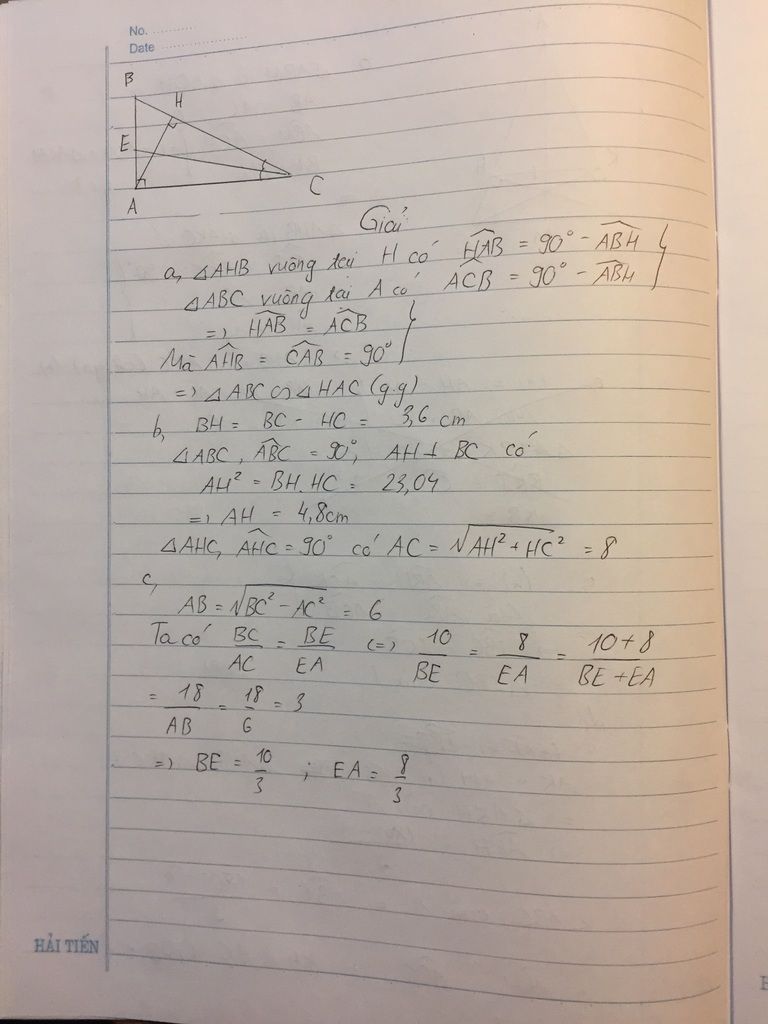 No.
Date
B
H
E
A
C
Giải
a, △AHB vuông tại H có \widehat{HAB} = 90° - \widehat{ABH}
△ABC vuông tại A có \widehat{ACB} = 90° - \widehat{ABH}
=) \widehat{HAB} = \widehat{ACB}
Mà \widehat{AHB} = \widehat{CAB} = 90°
=) △ABC ∽ △HAC (g.g)
b, BH = BC - HC = 3,6 cm
△ABC, \widehat{ABC} = 90°, AH ⊥ BC có
AH² = BH.HC = 23,04
=) AH = 4,8cm
△AHC, \widehat{AHC} = 90° có AC = √(AH² + HC²) = 8
c,
AB = √(BC² - AC²) = 6
Ta có BC/AC = BE/EA (=) 10/BE = 8/EA = (10+8)/(BE+EA)
= 18/AB = 18/6 = 3
=) BE = 10/3 ; EA = 8/3
HẢI TIẾN